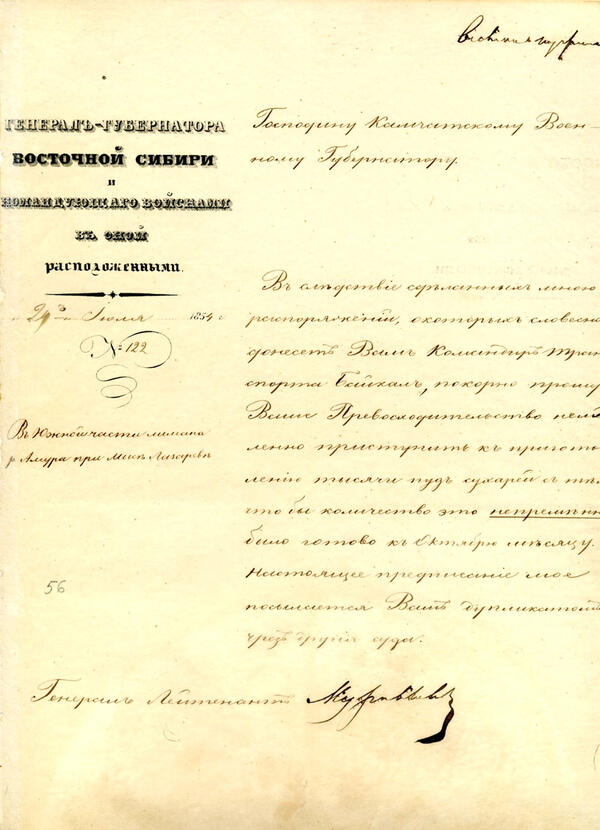 ГЕНЕРАЛЪ-ГУБЕРНАТОРА
ВОСТОЧНОЙ СИБИРИ
И
КОМАНДУЮЩАГО ВОЙСКАМИ
ВЪ ОНОЙ
РАСПОЛОЖЕННЫМИ.
Іюля 1854 г
№ 122
Въ Южной части лимана
р. Амура при Мысѣ Лазаревѣ
56
Господину Камчатскому Воен-
ному Губернатору.
Въ слѣдствіе сдѣланныхъ мною
распоряженій, о которыхъ словесно
донесетъ Вамъ Командиръ Тран
спорта Байкалъ, покорно прошу
Ваше Превосходительство немѣд
ленно приступить къ пригото
вленію тысячи пудъ сухарей съ тѣм
что бы количество это непремѣнно
было готово къ Октябрю мѣсяцу.
Настоящее предписаніе мое
посылается Вамъ дупликатомъ
чрезъ другія суда.
Генералъ Лейтенантъ Муравьевъ